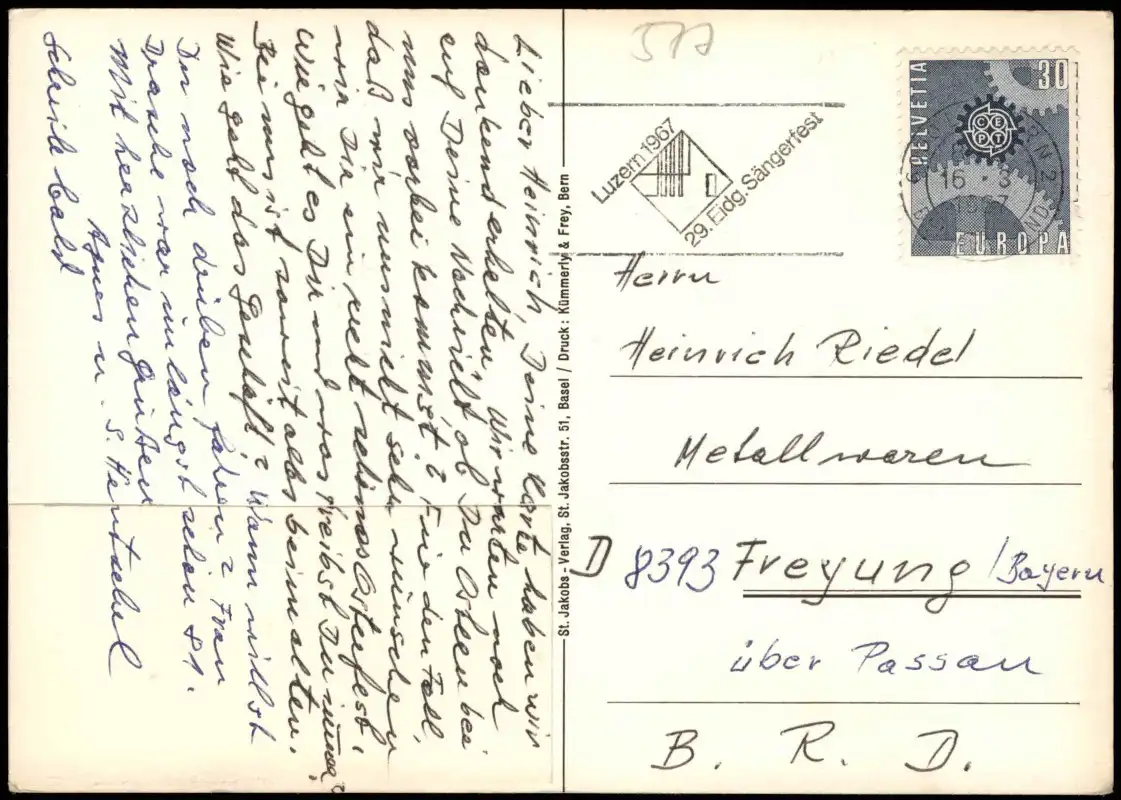 Lieber Heinrich, Deine Karte haben wir
dankend erhalten, Wir warten noch
auf Deine Nachricht, ob Du Ostern bei
uns vorbei kommst? Für den Fall,
daß wir uns nicht sehn wünschen
wir Dir ein recht schönes Osterfest.
Wie geht es Dir und was treibst Du immer?
Bei uns ist soweit alles beim alten.
Wie geht das Geschäft? Wann willst
Du noch drüben fahren? Frau
war inlängst schon 81.
Mit herzlichen Grüßen
Agnes u. S. Hentschel
Schreibe bald
St. Jakobs-Verlag, St. Jakobsstr. 51, Basel / Druck: Kümmerly & Frey, Bern
577
Luzern 1967
29. Eidg. Sängerfest
HELVETIA
30
CEPT
EUROPA
16 · 3
1967
Herrn
Heinrich Riedel
Metallwaren
D 8393 Freyung / Bayern
über Passau
B. R. D.